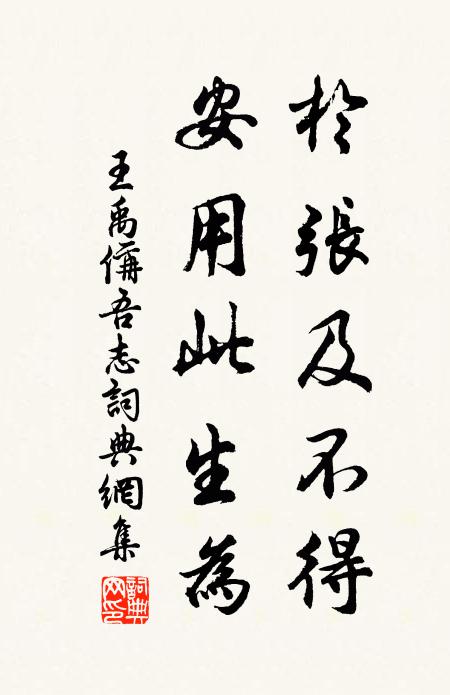 於張及不得
安用此生為
王禹偁吾志詞典網集
詞典网印